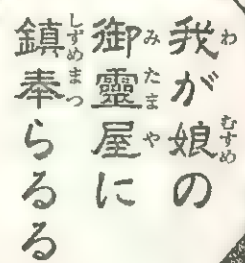 我が娘の
御靈屋に
鎮奉らるる